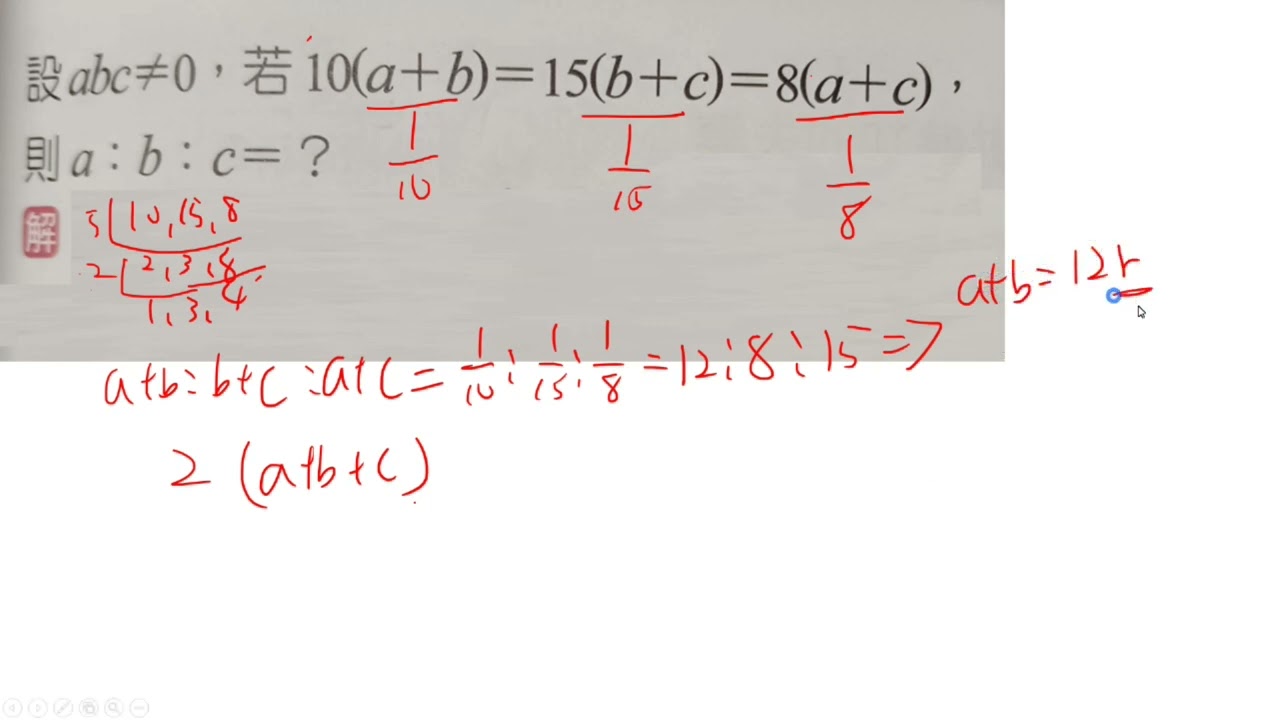 設abc≠0，若10(a+b)=15(b+c)=8(a+c)，
1/10 1/15 1/8
則a：b：c=？
解
5 10,15,8
2 2,3,8
1,3,4
a+b=12r
a+b:b+c:a+c=1/10:1/15:1/8=12:8:15=>
2(a+b+c)